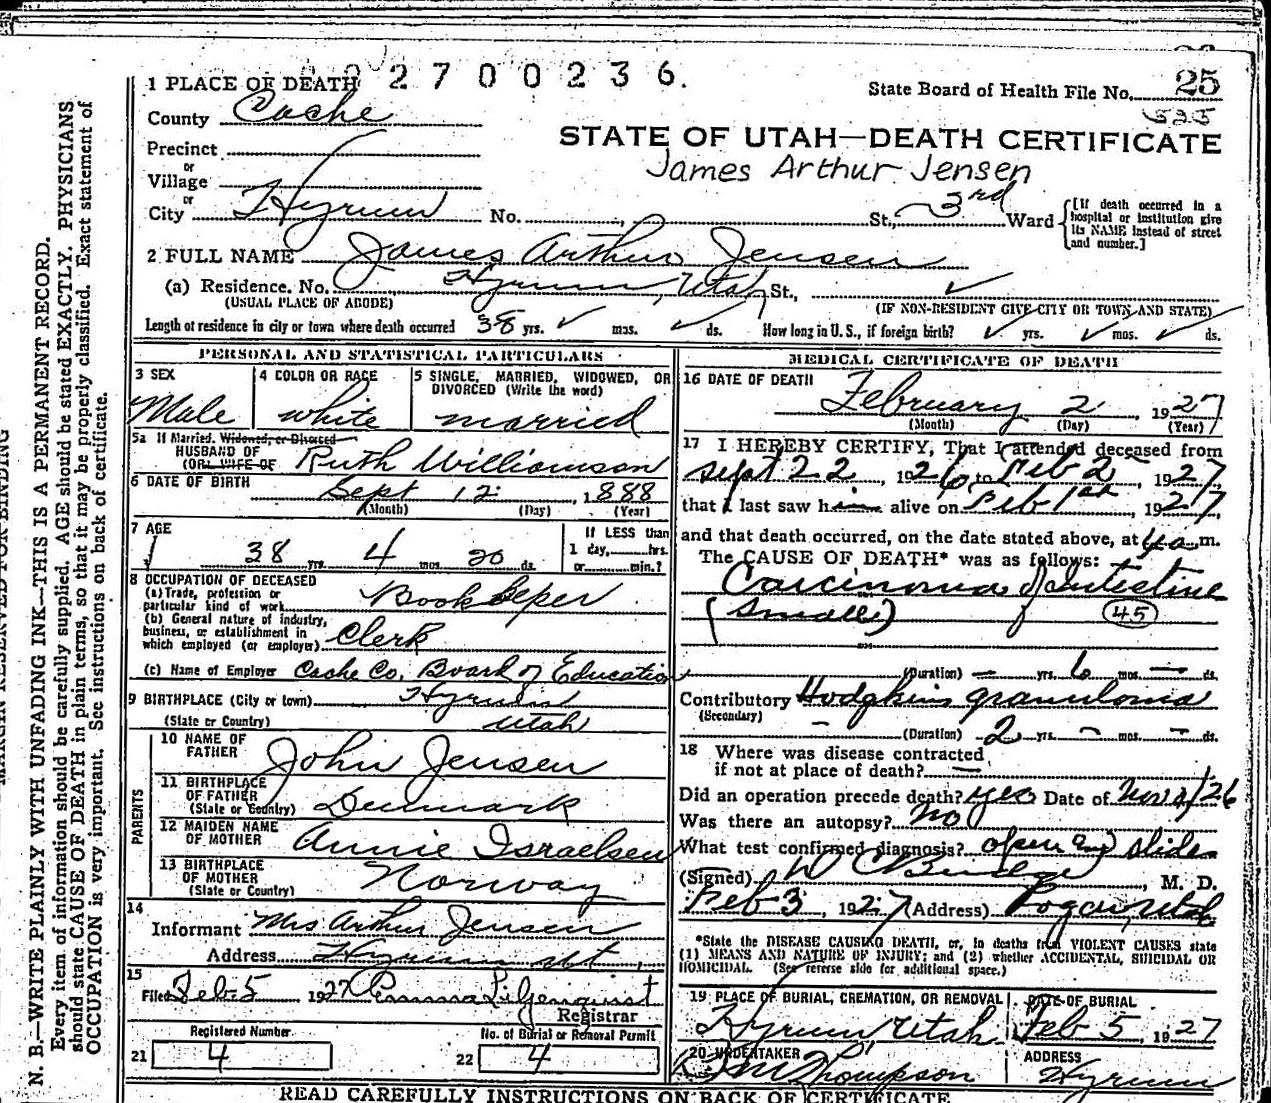 02700236.
1 PLACE OF DEATH
State Board of Health File No. 25
525
County Cache
STATE OF UTAH—DEATH CERTIFICATE
James Arthur Jensen
Precinct
or
Village
or
City Hyrum No. St., 3rd Ward
[If death occurred in a hospital or institution give its NAME instead of street and number.]
2 FULL NAME James Arthur Jensen
(a) Residence. No. Hyrum, Utah St.,
(USUAL PLACE OF ABODE) (IF NON-RESIDENT GIVE CITY OR TOWN AND STATE)
Length of residence in city or town where death occurred 38 yrs. mos. ds. How long in U.S., if foreign birth? yrs. mos. ds.
PERSONAL AND STATISTICAL PARTICULARS
3 SEX Male
4 COLOR OR RACE white
5 SINGLE, MARRIED, WIDOWED, OR DIVORCED (Write the word) married
5a If Married, Widowed, or Divorced
HUSBAND OF
(OR WIFE OF Ruth Williamson
6 DATE OF BIRTH Sept 12, 1888
(Month) (Day) (Year)
7 AGE 38 yrs. 4 mos. 20 ds.
If LESS than
1 day, hrs.
or min.?
8 OCCUPATION OF DECEASED
(a) Trade, profession or
particular kind of work Bookkeeper
(b) General nature of industry,
business, or establishment in
which employed (or employer) Clerk
(c) Name of Employer Cache Co. Board of Education
9 BIRTHPLACE (City or town) Hyrum
(State or Country) Utah
PARENTS
10 NAME OF
FATHER John Jensen
11 BIRTHPLACE
OF FATHER
(State or Country) Denmark
12 MAIDEN NAME
OF MOTHER Annie Israelsen
13 BIRTHPLACE
OF MOTHER
(State or Country) Norway
14
Informant Mrs Arthur Jensen
Address Hyrum Ut
15
Filed Feb 5 1927
Registrar
Registered Number
21 4
No. of Burial or Removal Permit
22 4
MEDICAL CERTIFICATE OF DEATH
16 DATE OF DEATH
February 2, 1927
(Month) (Day) (Year)
17 I HEREBY CERTIFY, That I attended deceased from
Sept 22 1926 to Feb 2, 1927
that I last saw him alive on Feb 1st, 1927,
and that death occurred, on the date stated above, at 4 a.m.
The CAUSE OF DEATH* was as follows:
Carcinoma of Intestine
(small) 45
(Duration) — yrs. 6 mos. — ds.
Contributory Hodgkins granuloma
(Secondary)
(Duration) 2 yrs. – mos. – ds.
18 Where was disease contracted
if not at place of death? —
Did an operation precede death? yes Date of Nov /26
Was there an autopsy? no
What test confirmed diagnosis? open and slides
(Signed) W C Budge, M. D.
Feb 3, 1927 (Address) Logan, Utah
*State the DISEASE CAUSING DEATH, or, in deaths from VIOLENT CAUSES state
(1) MEANS AND NATURE OF INJURY; and (2) whether ACCIDENTAL, SUICIDAL OR
HOMICIDAL. (See reverse side for additional space.)
19 PLACE OF BURIAL, CREMATION, OR REMOVAL
Hyrum, Utah
DATE OF BURIAL
Feb 5, 1927
20 UNDERTAKER
Thompson
ADDRESS
Hyrum
READ CAREFULLY INSTRUCTIONS ON BACK OF CERTIFICATE
MARGIN RESERVED FOR BINDING
N. B.—WRITE PLAINLY WITH UNFADING INK—THIS IS A PERMANENT RECORD.
Every item of information should be carefully supplied. AGE should be stated EXACTLY. PHYSICIANS
should state CAUSE OF DEATH in plain terms, so that it may be properly classified. Exact statement of
OCCUPATION is very important. See instructions on back of certificate.